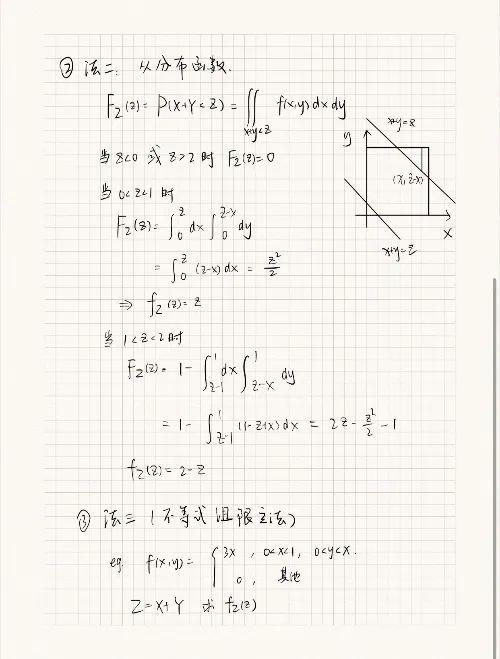 ② 法二: 从分布函数.
F_Z(z) = P(X+Y<Z) = ∬_{x+y<z} f(x,y) dx dy
当 z<0 或 z>2 时 F_Z(z)=0
当 0<z<1 时
F_Z(z) = ∫_0^z dx ∫_0^{z-x} dy
= ∫_0^z (z-x) dx = z²/2
⇒ f_Z(z) = z
当 1<z<2 时
F_Z(z) = 1 - ∫_{z-1}^1 dx ∫_{z-x}^1 dy
= 1 - ∫_{z-1}^1 (1-z+x) dx = 2z - z²/2 - 1
f_Z(z) = 2-z
x+y=z
y
(x, z-x)
x
x+y=z
③ 法三 (不等式组限定法)
eg. f(x,y) = { 3x , 0<x<1, 0<y<x.
0 , 其他
Z=X+Y 求 f_Z(z)